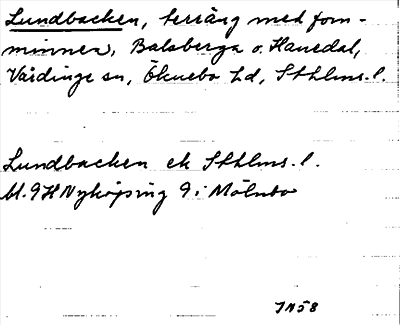 Lundbacken, terräng med forn-
minnen, Balsberga o. Hanedal,
Vårdinge sn, Öknebo hd, Sthlms. l.
Lundbacken ek Sthlms. l.
bl. 9H Nyköping 9i Mölnbo
JN58